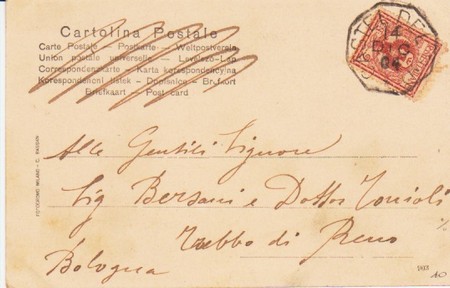 Cartolina Postale
Carte Postale - Postkarte - Weltpostverein
Union postale universelle - Levelező-Lap
Correspondenzkarte - Karta korespondencyjna
Korespondenční lístek - Dopisnice - Brefkort
Briefkaart - Post card
14
DIC
04
Alle Gentili Signore
Sig Bersani e Dottor Tonioli
Trebbo di Reno
Bologna
10